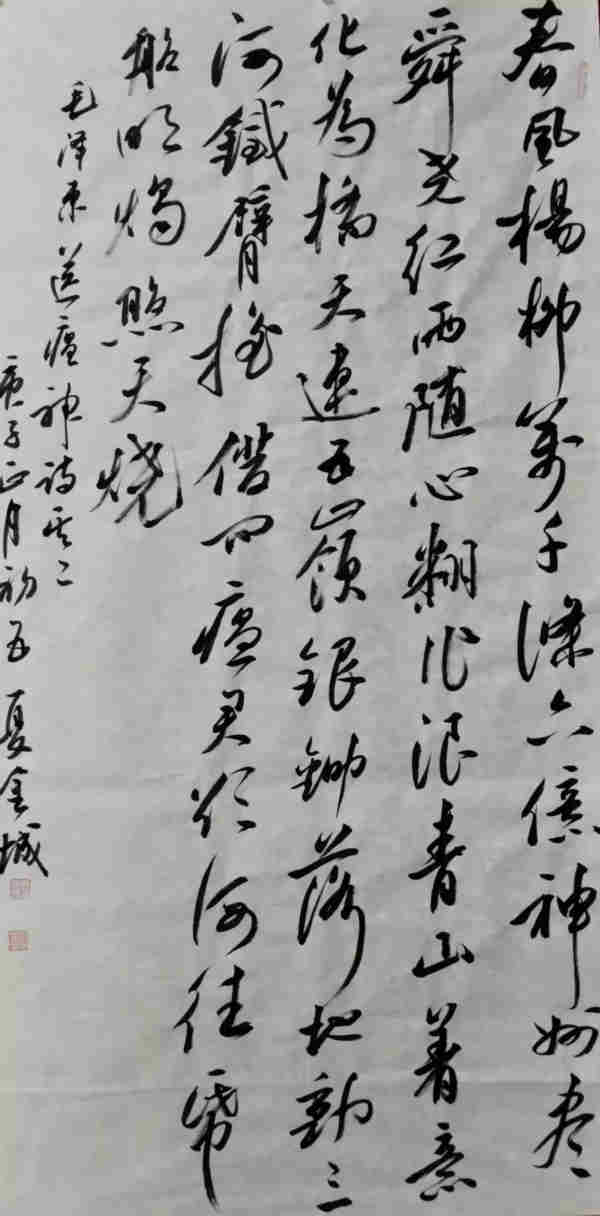 春風楊柳萬千條六億神州尽
舜尧红雨随心翻作浪青山着意
化為橋天連五嶺銀鋤落地動三
河鐵臂摇借问瘟君欲何往帋
船明燭照天烧
毛泽东送瘟神诗其二
庚子正月初五 夏金城